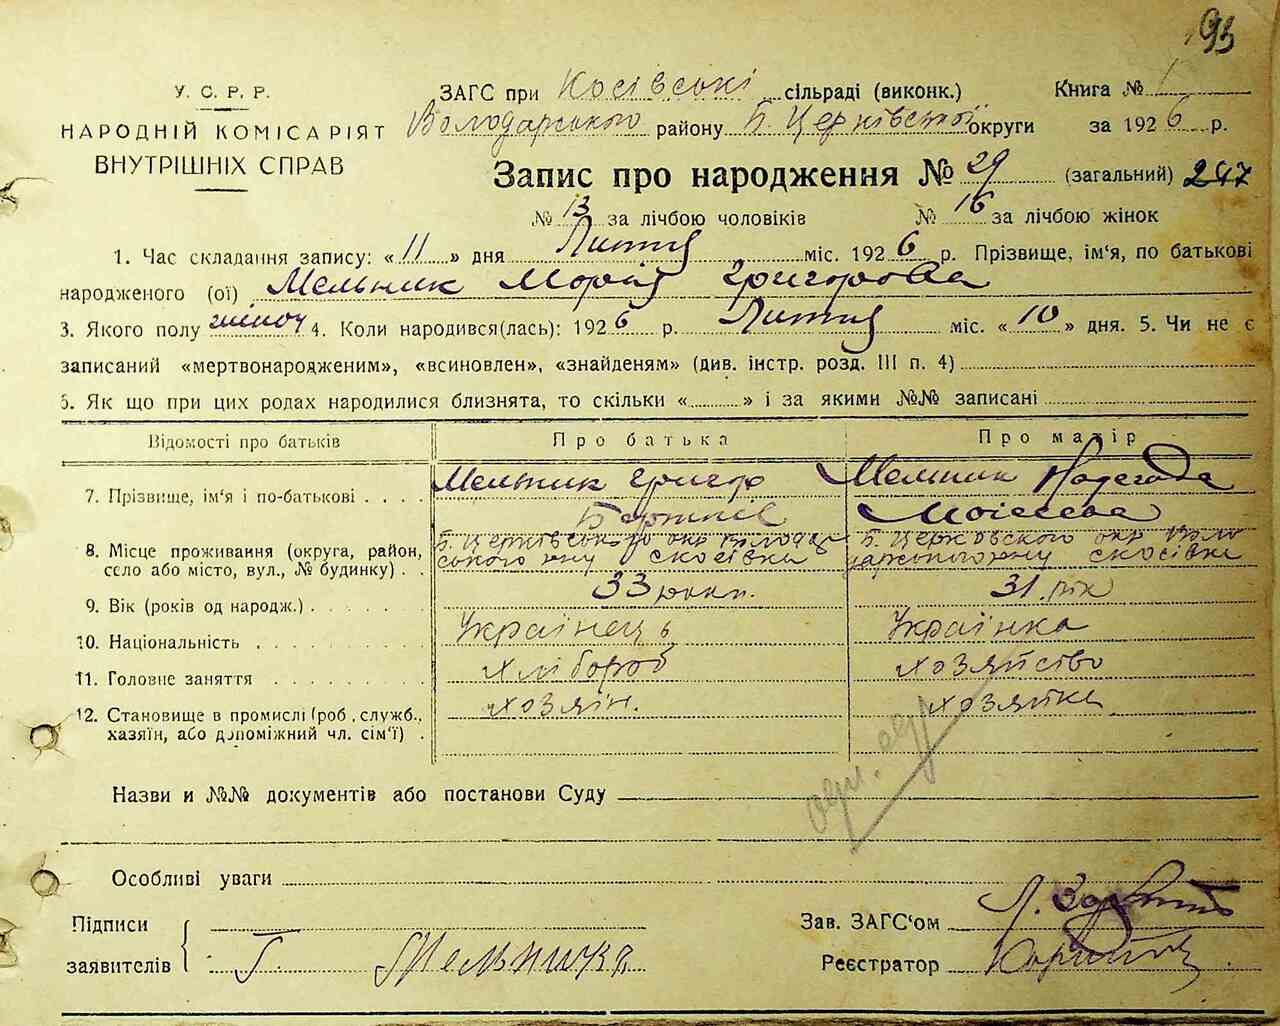 93
У. С. Р. Р.
НАРОДНІЙ КОМІСАРІЯТ
ВНУТРІШНІХ СПРАВ
ЗАГС при Косівські сільраді (виконк.) Книга № 1
Володарського району Б. Церківської округи за 1926 р.
Запис про народження № 29 (загальний) 247
№ 13 за лічбою чоловіків № 16 за лічбою жінок
1. Час складання запису: « 11 » дня Лютня міс. 1926 р. Прізвище, ім'я, по батькові
народженого (ої) Мельник Морія Григорова
3. Якого полу жіноч 4. Коли народився(лась): 1926 р. Лютня міс. « 10 » дня. 5. Чи не є
записаний «мертвонародженим», «всиновлен», «знайденям» (див. інстр. розд. III п. 4)
6. Як що при цих родах народилися близнята, то скільки « » і за якими №№ записані
Відомості про батьків Про батька Про матір
7. Прізвище, ім'я і по-батькові Мельник Григор Мельник Надегода
Моісеева
8. Місце проживання (округа, район, село або місто, вул., № будинку) Б. Церківського окр Володар ського ну с Косівка Б. Церковского окр Воло дарського ну с Косівка
9. Вік (років од народж.) 33 роки. 31 рік
10. Національність Українець Українка
11. Головне заняття хлібороб хозяйство
12. Становище в промислі (роб., служб., хазяїн, або допоміжний чл. сім'ї) хозяін. хозяйка
Назви и №№ документів або постанови Суду
Особливі уваги
Підписи
заявителів Г. Мельника
Зав. ЗАГС'ом Л.
Реєстратор